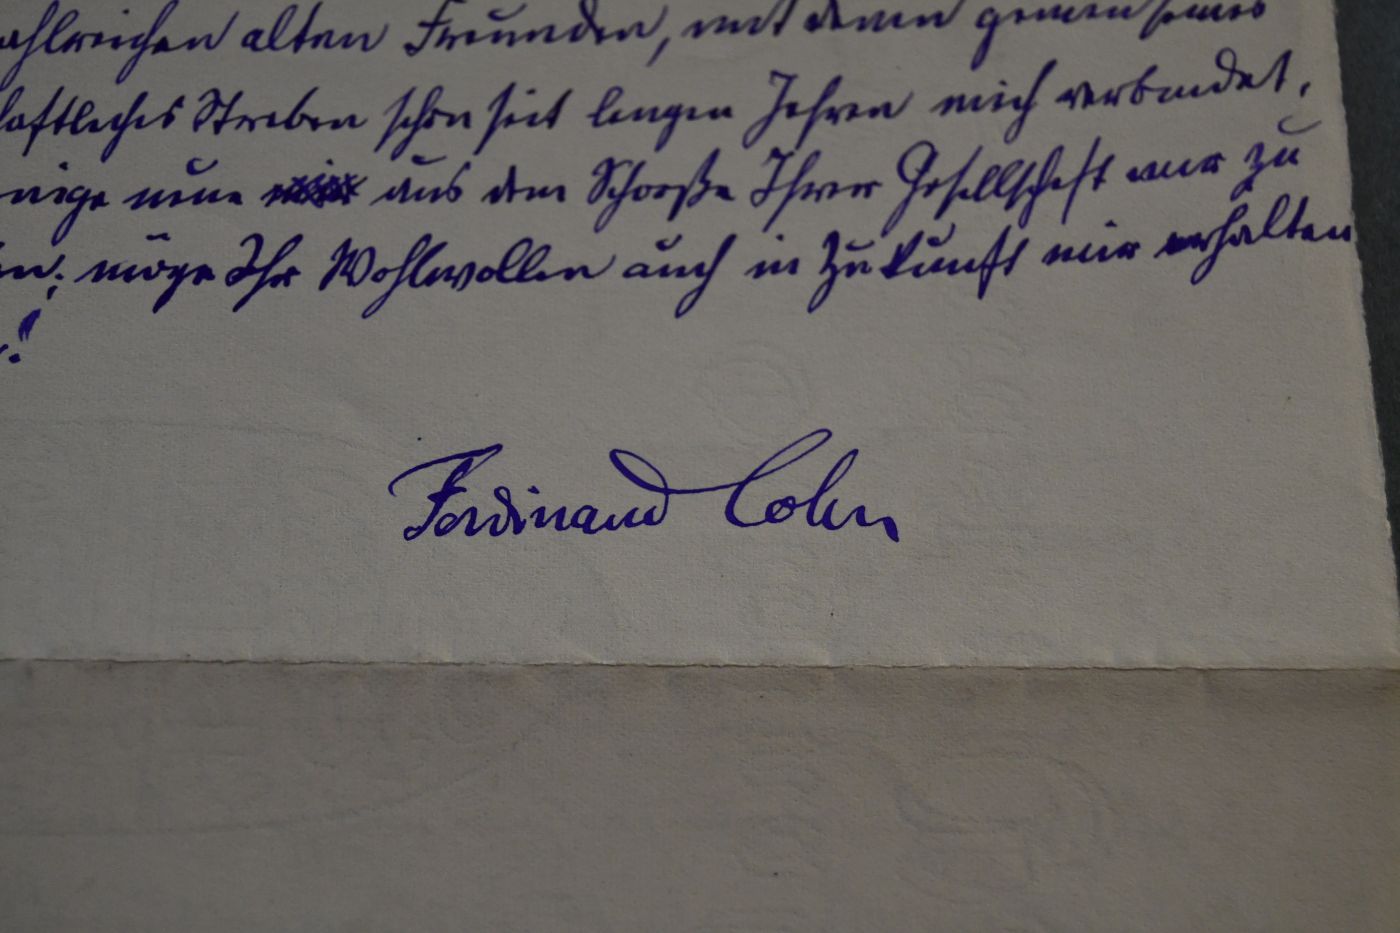 ahlreichen alten Freunden, mit denen gemeinsames
haftliches Streben schon seit langen Jahren mich verbindet,
nige neue aus dem Schooße Ihrer Gesellschaft mir zu
en; möge Ihr Wohlwollen auch in Zukunft mir erhalten
!
Ferdinand Cohn